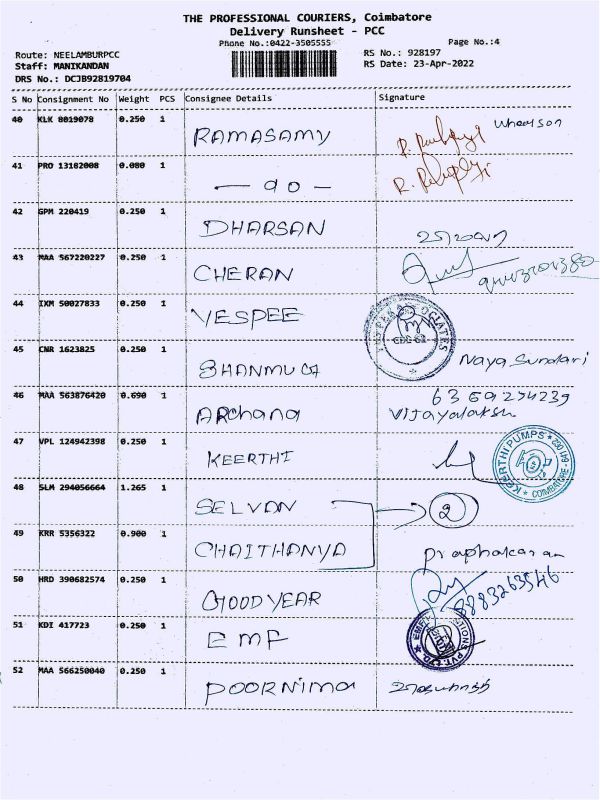 THE PROFESSIONAL COURIERS, Coimbatore
Delivery Runsheet - PCC
Phone No.:0422-3505555 Page No.:4
Route: NEELAMBURPCC RS No.: 928197
Staff: MANIKANDAN RS Date: 23-Apr-2022
DRS No.: DCJB92819704
S No Consignment No Weight PCS Consignee Details Signature
40 KLK 8019078 0.250 1 RAMASAMY
41 PRO 13182008 0.080 1 — do —
42 GPM 220419 0.250 1 DHARSAN
43 MAA 567220227 0.250 1 CHERAN
44 IXM 50027833 0.250 1 VESPEE
45 CNR 1623825 0.250 1 SHANMUGA Naya Sundari
46 MAA 563876420 0.690 1 ARchana
Vijayalaksh
47 VPL 124942398 0.250 1 KEERTHI KEERTHI PUMPS COIMBATORE
48 SLM 294056664 1.265 1 SELVAN 2
49 KRR 5356322 0.900 1 CHAITHANYA Praphakaran
50 HRD 390682574 0.250 1 GOODYEAR 8883263546
51 KDI 417723 0.250 1 EMF
52 MAA 566250040 0.250 1 POORNIMA